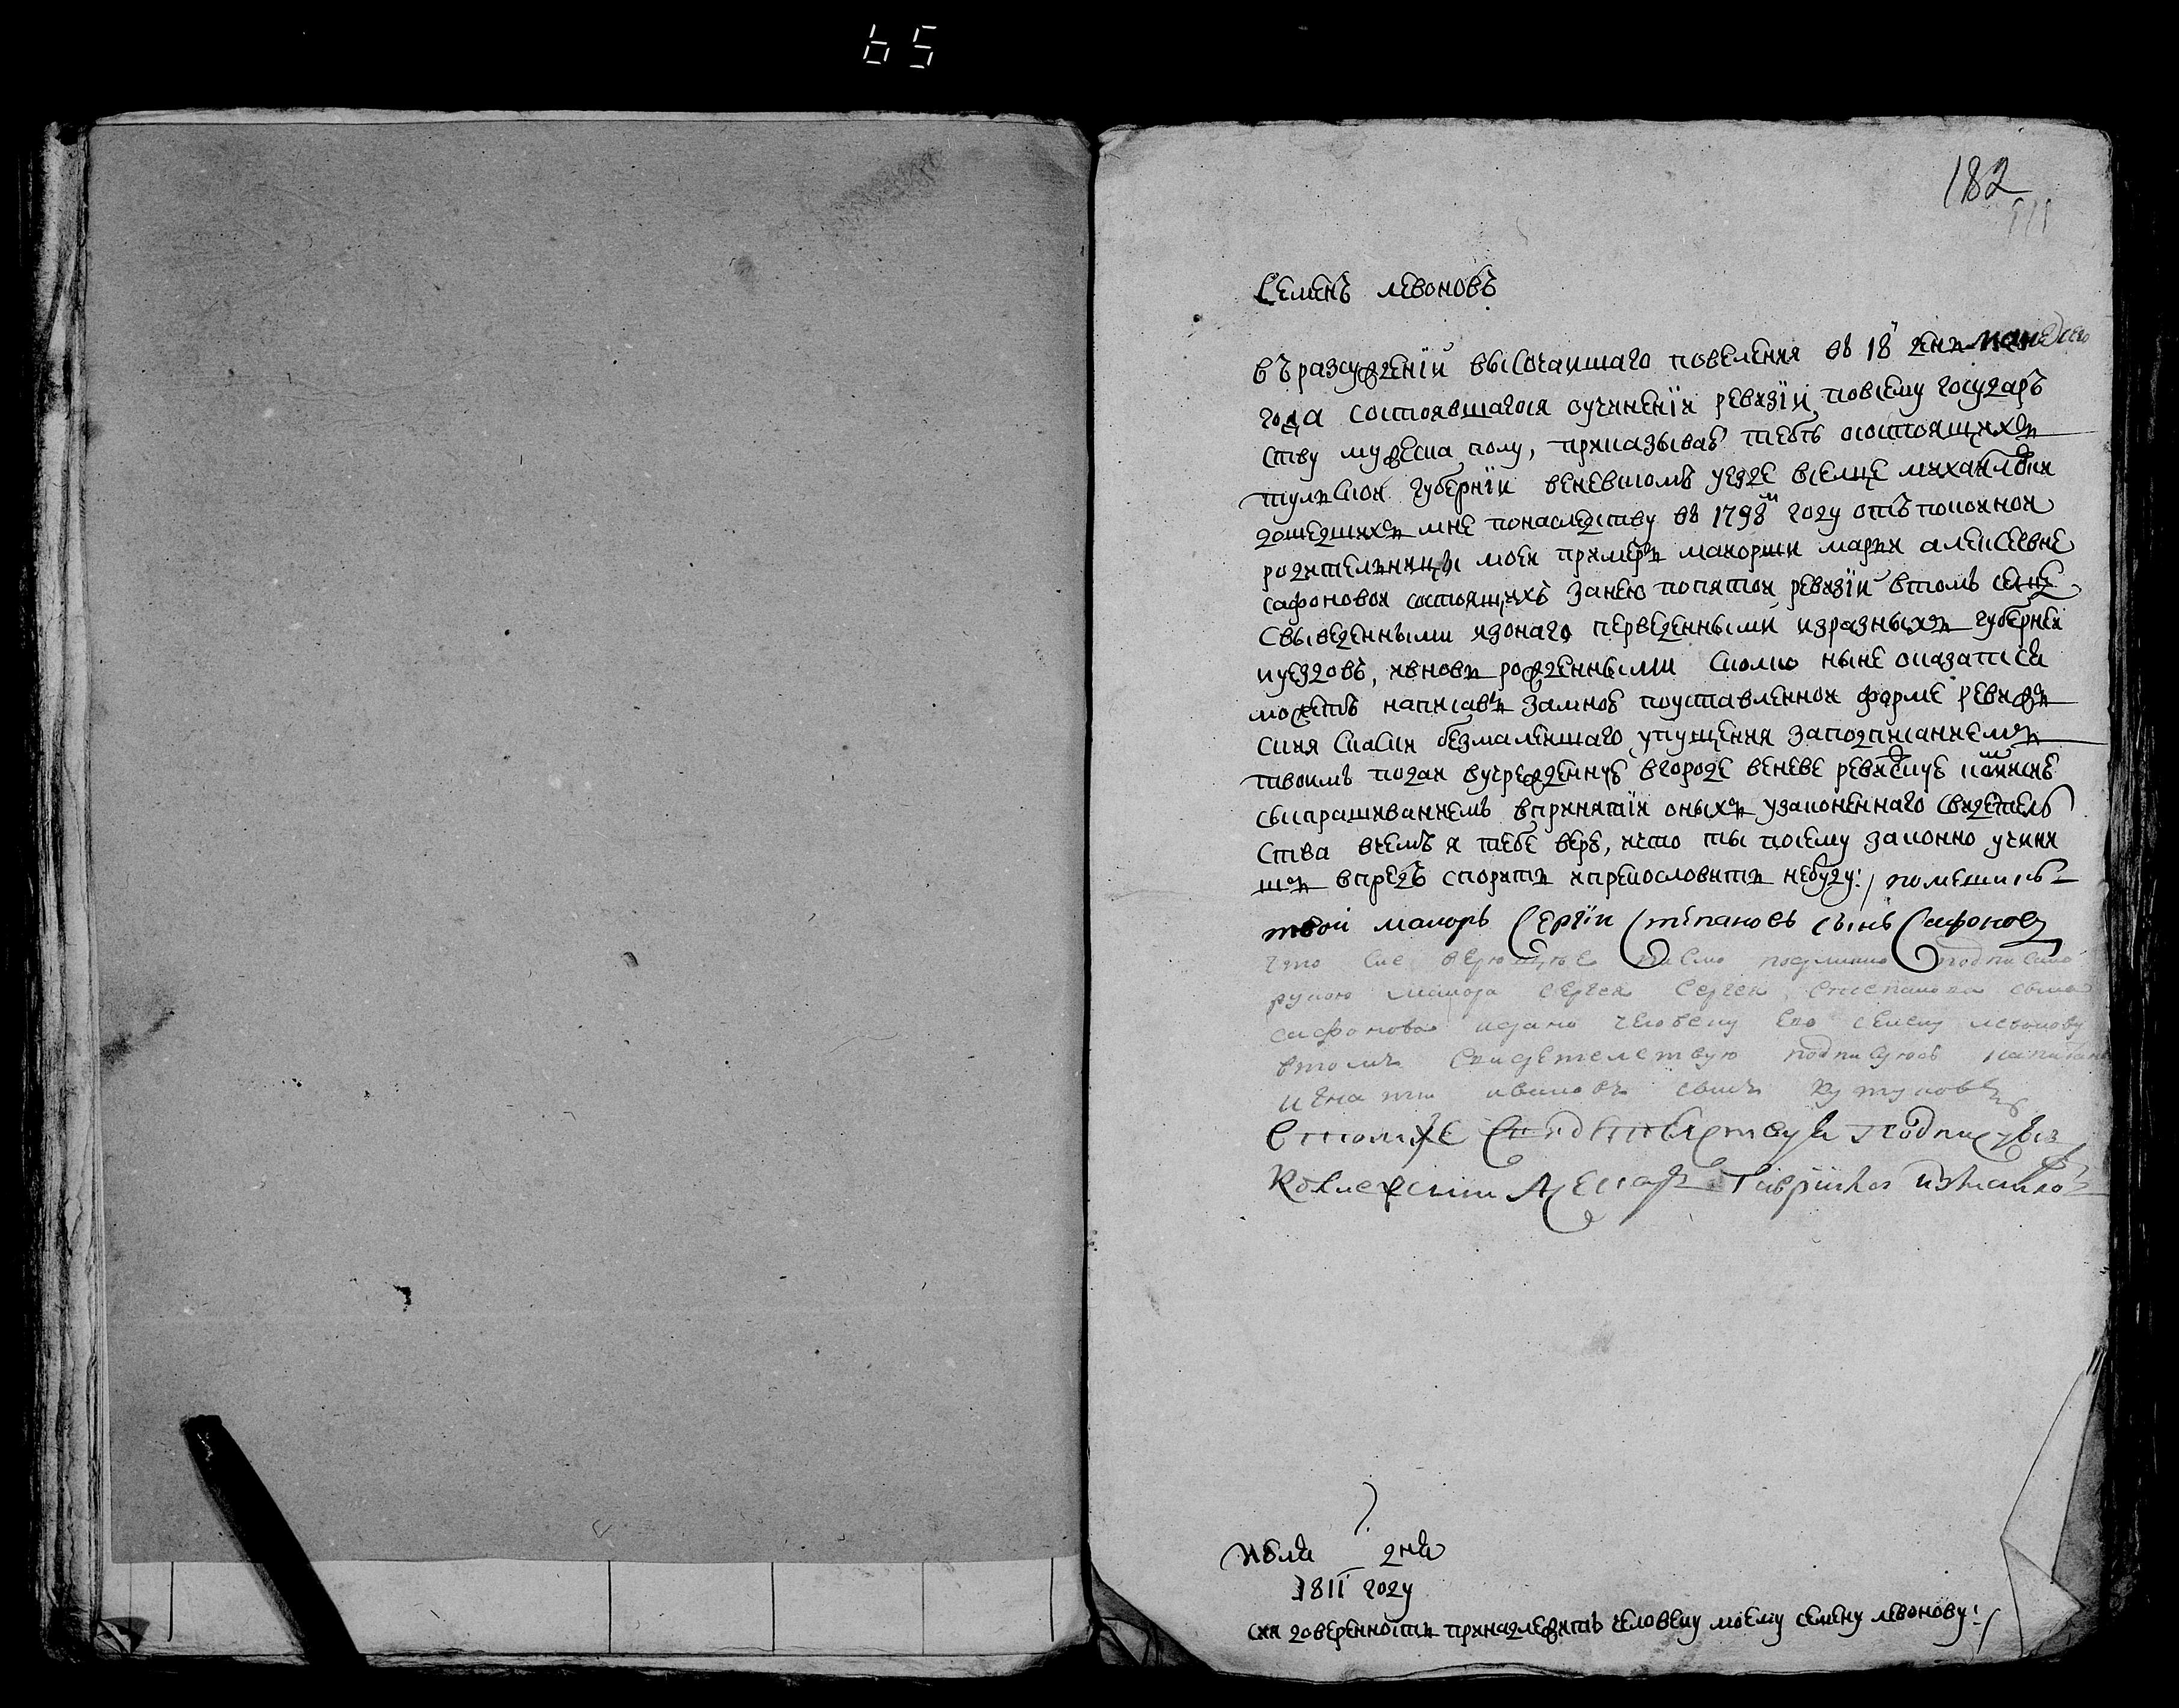 65
182
Семенъ левоновъ
въ разсужденїи высочаишаго повеления въ 18 день мая сего
года состоявшагося о учиненїи ревизїи повсему государъ
ству мужеска полу, приказываю тебѣ о состоящихъ
тульской губернїи веневскомъ уезде в селце михаиловки
дошедшихъ мне понаследству въ 1798м году отъ покоиной
родительницы моеи примеръ маиорши марьи алексеевне
сафоновои состоящихъ занею попятои ревизїи втомъ селце
свыведенными изонаго переведенными изразныхъ губерней
иуездовъ, ивновь рожденными сколко ныне оказатся
можетъ написавъ замною поуставленнои форме ревижъ
ския скаски безмалеишаго упущения заподписаниемъ
твоимъ подаи вучрежденную вгороде веневе ревискую комисию
сыспрашиваниемъ впринятїи оныхъ узаконеннаго свидетель
ства вчемъ я тебе верю, ичто ты посему законно учини
шъ впредь спорить ипрекословить небуду! / помещикъ
твой маиоръ Сергїи Степановъ сынъ Сафоновъ
что сие верющее писмо подлинно подписано
рукою маиора сергея Сергея Степанова сына
сафонова идано человеку ево семену левонову
втомъ свидетелствую подписуюсь капитанъ
игнати ивановъ сынъ Кутуковъ
втомже свидетелствую подписуюсь
Колежскии Асесаръ Гаврила измаило
июля дня
1811 году
сия доверенность принадлежитъ человеку моему семену левонову! /